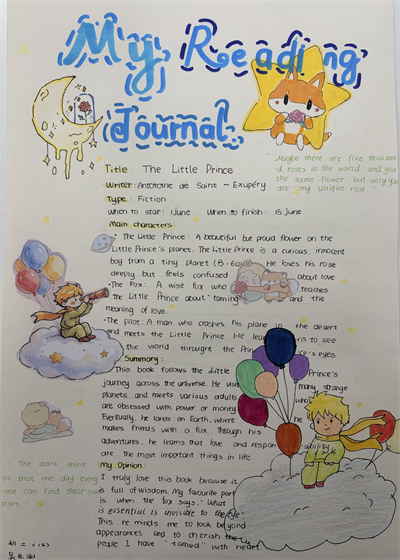 My Reading
Journal
"Maybe there are five thousan
d roses in the world and you
the same flower but only you
are my unique rose."
Title: The Little Prince
Writer: Antoine de Saint-Exupéry
Type: Fiction
When to star: 1June When to finish: 15 june
Main characters:
• The Little Prince: A beautiful but proud flower on the
Little Prince's planet. The Little Prince is a curious, innocent
boy from a tiny planet (B-60 He loves his rose
deeply but feels confused about love
• The Fox: A wise fox who teaches
the Little Prince about "taming and the
meaning of love.
• The pilot: A man who crashes his plane in the desert
and meets the Little Prince. He lear to see
the world throught the Prin ce's eyes
Summary:
This book follows the Little Prince's
journey across the universe. He visi many strange
planets and meets various adults who
are obsessed with power or money
Eventually, he lands on Earth, where he
makes friends with a fox. Through his
adventures, he learns that love and respon sibility
are the most important things in life.
"The stars shine
so that one day every
one can find their own
stars."
My Opinion:
I truly love this book because it
is full of wisdom. My favourite part
is when the fox says, "What
is essential is invisible to the eye"
This re minds me to look beyond
appearances and to cherish the
people I have "tamed" with heart